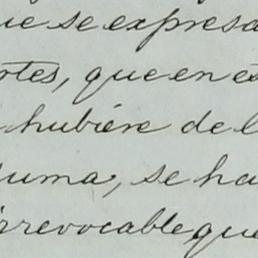 ue se expresa
rtes, que en es
hubiére de l
suma, se ha
irrevocable que